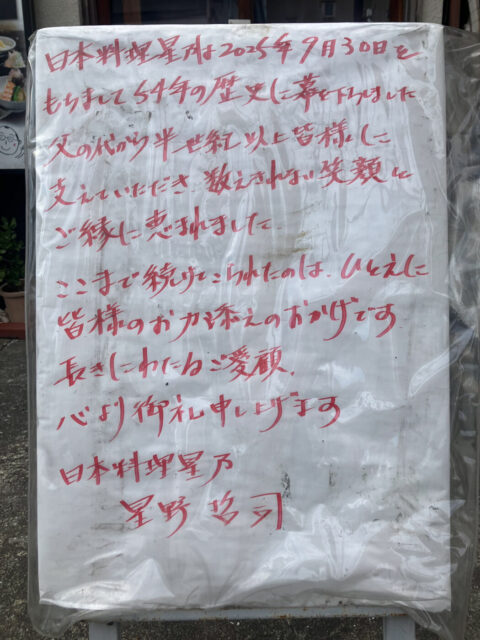 日本料理星乃は2025年9月30日を
もちまして54年の歴史に幕を下ろしました
父の代から半世紀以上皆様に
支えていただき 数えきれない笑顔と
ご縁に恵まれました
ここまで続けてこられたのは、ひとえに
皆様のお力添えのおかげです
長きにわたるご愛顧、
心より御礼申し上げます
日本料理星乃
星野哲司